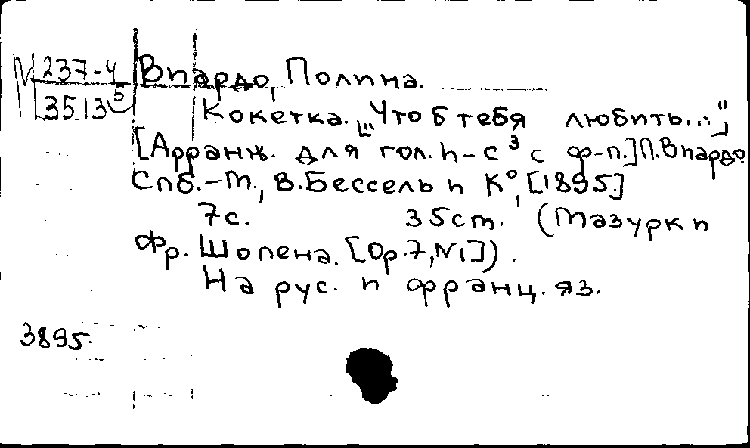 М 237-4
3513⁵
Виардо, Полина.
Кокетка. "Что б тебя любить..."
[Арранж. для гол. h-c³ с ф-п.] П. Виардо
Спб.-М., В. Бессель и К°, [1895]
7с. 35cm. (Мазурки
Фр. Шопена. [Op.7, N1]).
На рус. и франц. яз.
3895.